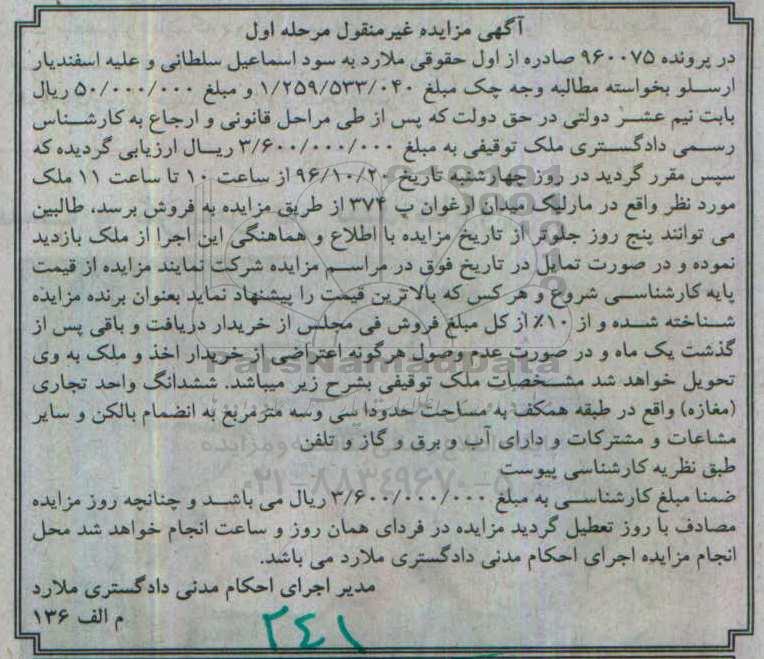 آگهی مزایده غیرمنقول مرحله اول
در پرونده ۹۶۰۰۷۵ صادره از اول حقوقی ملارد به سود اسماعیل سلطانی و علیه اسفندیار
ارسلو بخواسته مطالبه وجه چک مبلغ ۱/۲۵۹/۵۳۳/۰۴۰ و مبلغ ۵۰/۰۰۰/۰۰۰ ریال
بابت نیم عشر دولتی در حق دولت که پس از طی مراحل قانونی و ارجاع به کارشناس
رسمی دادگستری ملک توقیفی به مبلغ ۳/۶۰۰/۰۰۰/۰۰۰ ریال ارزیابی گردیده که
سپس مقرر گردید در روز چهارشنبه تاریخ ۹۶/۱۰/۲۰ از ساعت ۱۰ تا ساعت ۱۱ ملک
مورد نظر واقع در مارلیک میدان ارغوان پ ۳۷۴ از طریق مزایده به فروش برسد، طالبین
می توانند پنج روز جلوتر از تاریخ مزایده با اطلاع و هماهنگی این اجرا از ملک بازدید
نموده و در صورت تمایل در تاریخ فوق در مراسم مزایده شرکت نمایند مزایده از قیمت
پایه کارشناسی شروع و هر کس که بالاترین قیمت را پیشنهاد نماید بعنوان برنده مزایده
شناخته شده و از ۱۰٪ از کل مبلغ فروش فی مجلس از خریدار دریافت و باقی پس از
گذشت یک ماه و در صورت عدم وصول هرگونه اعتراضی از خریدار اخذ و ملک به وی
تحویل خواهد شد مشخصات ملک توقیفی بشرح زیر میباشد. ششدانگ واحد تجاری
(مغازه) واقع در طبقه همکف به مساحت حدودا سی وسه مترمربع به انضمام بالکن و سایر
مشاعات و مشترکات و دارای آب و برق و گاز و تلفن
طبق نظریه کارشناسی پیوست
ضمنا مبلغ کارشناسی به مبلغ ۳/۶۰۰/۰۰۰/۰۰۰ ریال می باشد و چنانچه روز مزایده
مصادف با روز تعطیل گردید مزایده در فردای همان روز و ساعت انجام خواهد شد محل
انجام مزایده اجرای احکام مدنی دادگستری ملارد می باشد.
مدیر اجرای احکام مدنی دادگستری ملارد
م الف ۱۳۶
۲۴۱
ParsNamadData
۰۲۱-۸۸۳۴۹۶۷۰-۵